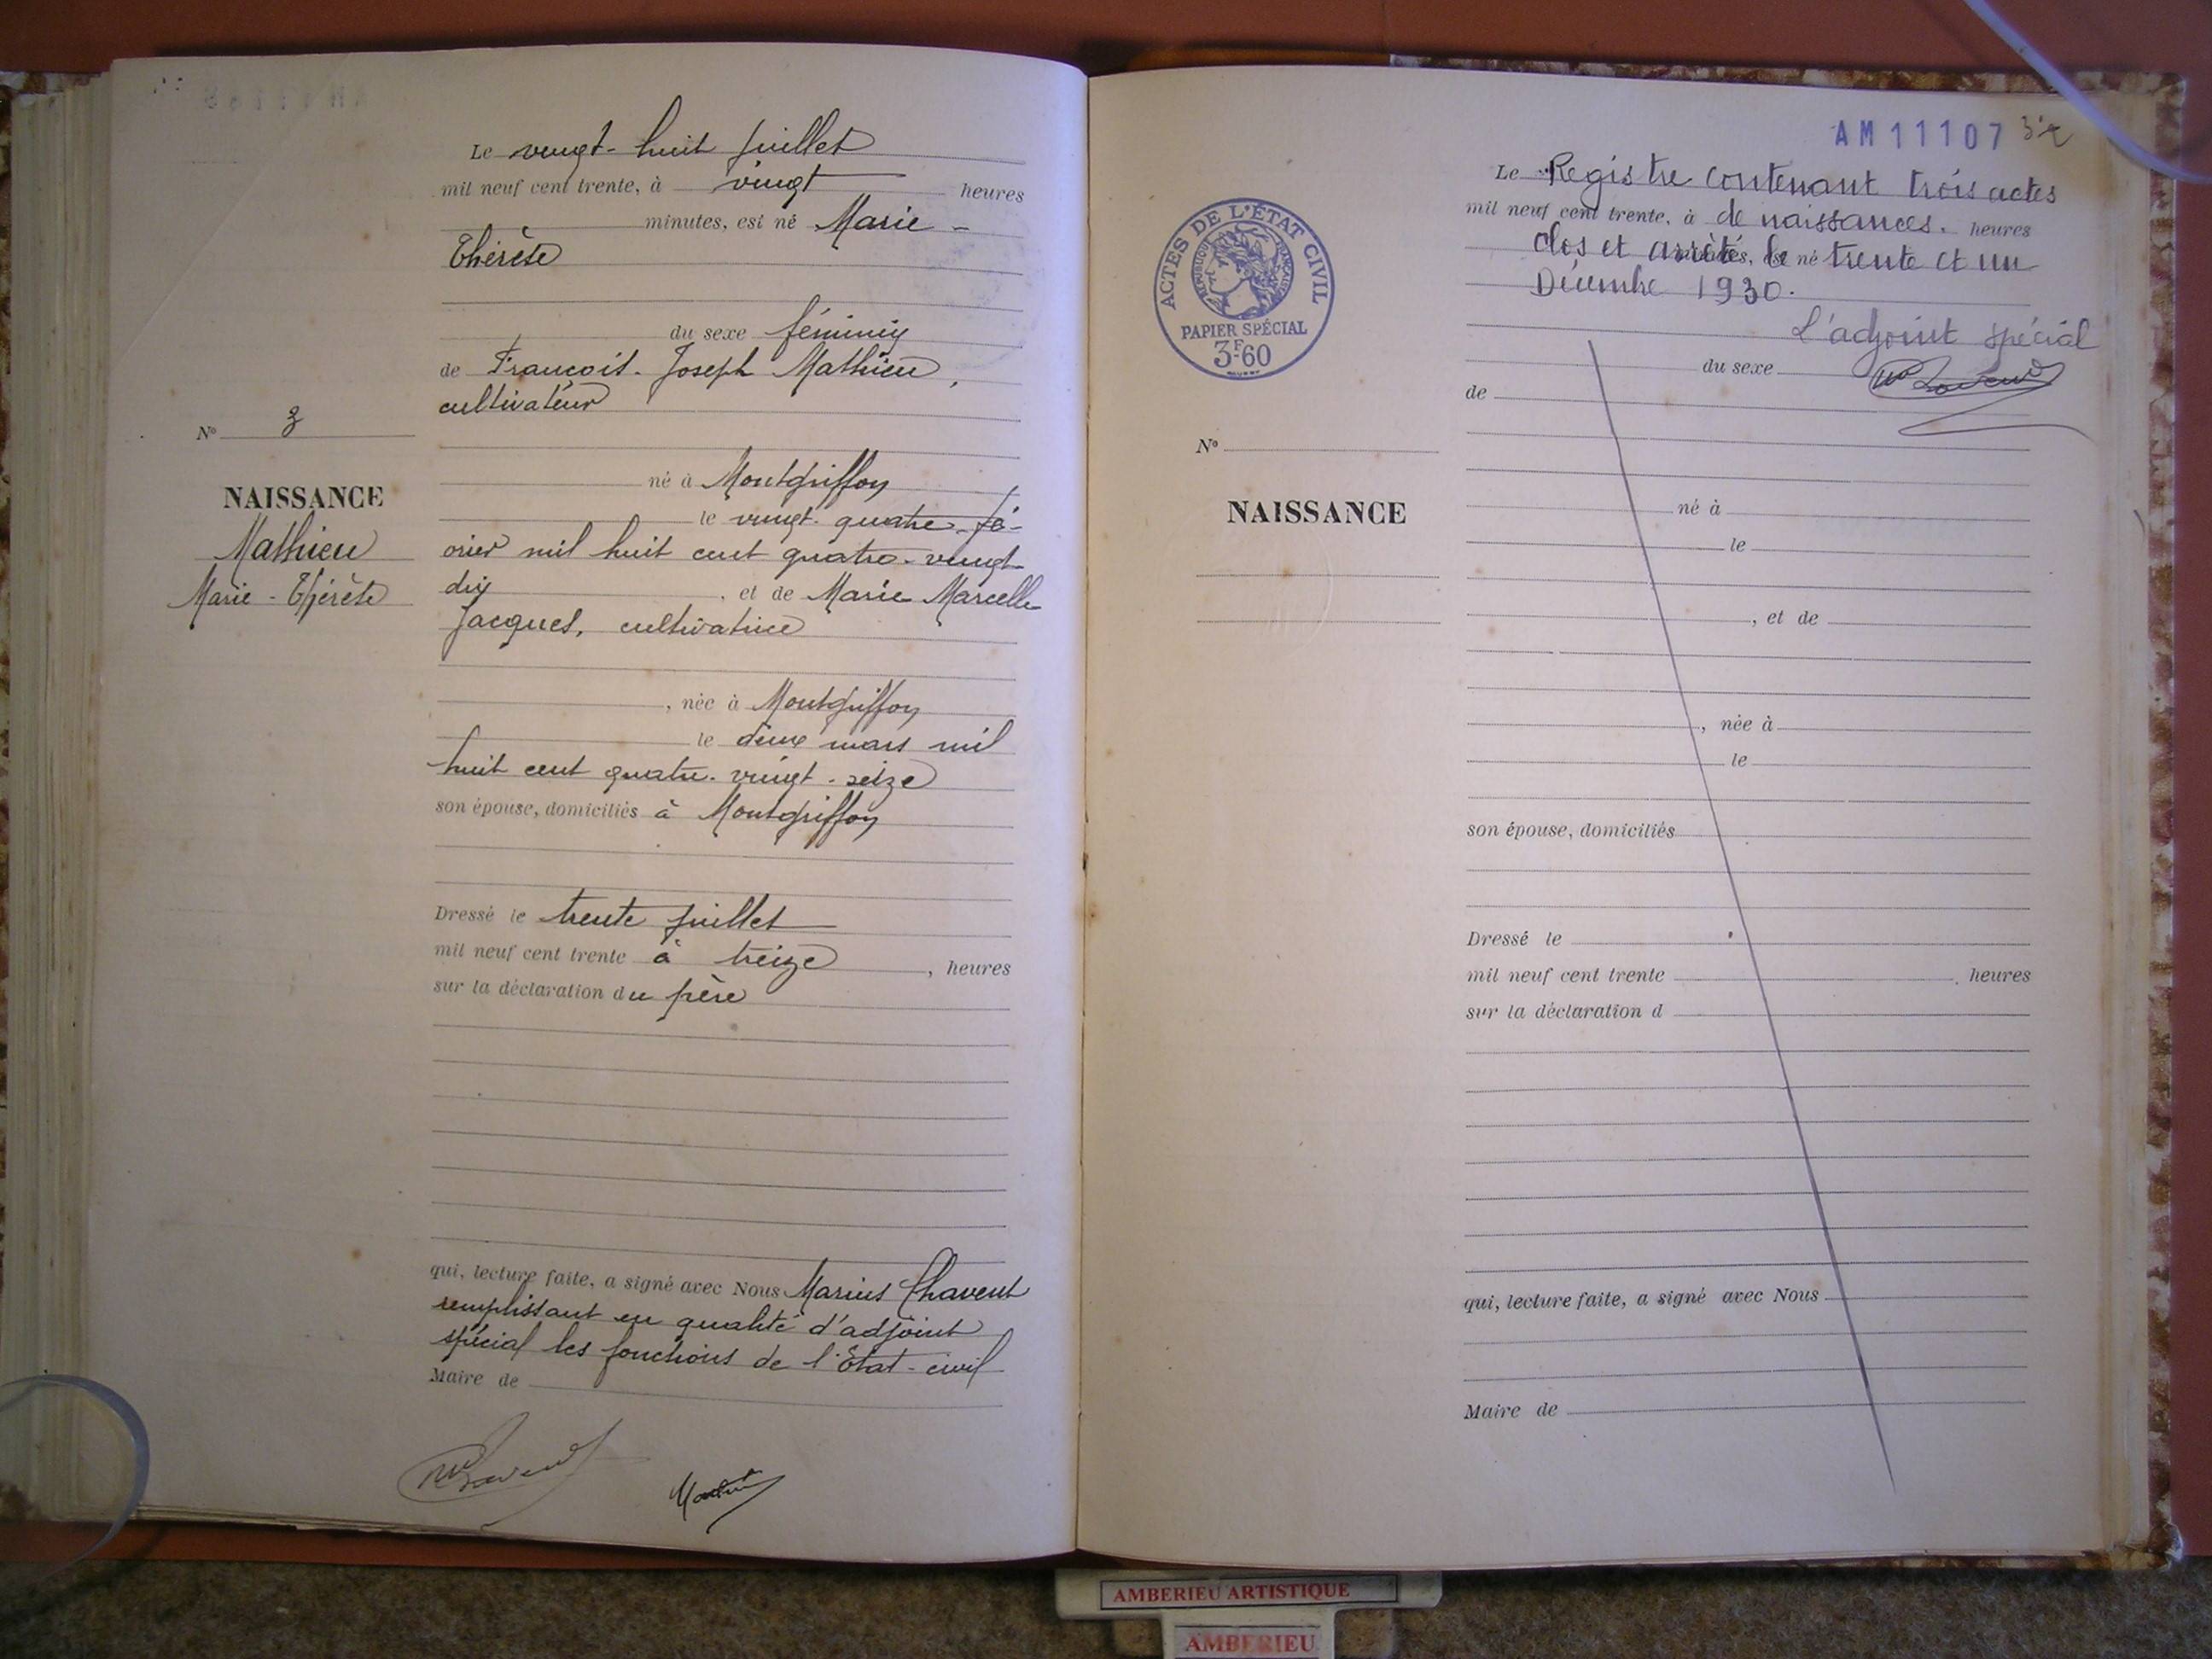 Le vingt-huit juillet
mil neuf cent trente, à vingt heures
minutes, est né Marie-
Thérèse
du sexe féminin
de François-Joseph Mathieu,
cultivateur
né à Montgriffon
le vingt-quatre fé-
vrier mil huit cent quatre-vingt-
dix, et de Marie Marcelle
Jacques, cultivatrice
, née à Montgriffon
le deux mars mil
huit cent quatre-vingt-seize
son épouse, domiciliés à Montgriffon
Dressé le trente juillet
mil neuf cent trente à treize, heures
sur la déclaration du père
qui, lecture faite, a signé avec Nous Marius Chavent
remplissant en qualité d'adjoint
spécial les fonctions de l'État-civil
Maire de
N° 3
NAISSANCE
Mathieu
Marie-Thérèse
AM11107
ACTES DE L'ÉTAT CIVIL
REPUBLIQUE FRANÇAISE
PAPIER SPÉCIAL
3F.60
Le Registre contenant trois actes
mil neuf cent trente, à de naissances. heures
clos et arrêté le né trente et un
Décembre 1930.
L'adjoint spécial
du sexe
de
N°
NAISSANCE
né à
le
, et de
, née à
le
son épouse, domiciliés
Dressé le
mil neuf cent trente heures
sur la déclaration d
qui, lecture faite, a signé avec Nous
Maire de
AMBERIEU ARTISTIQUE
AMBERIEU